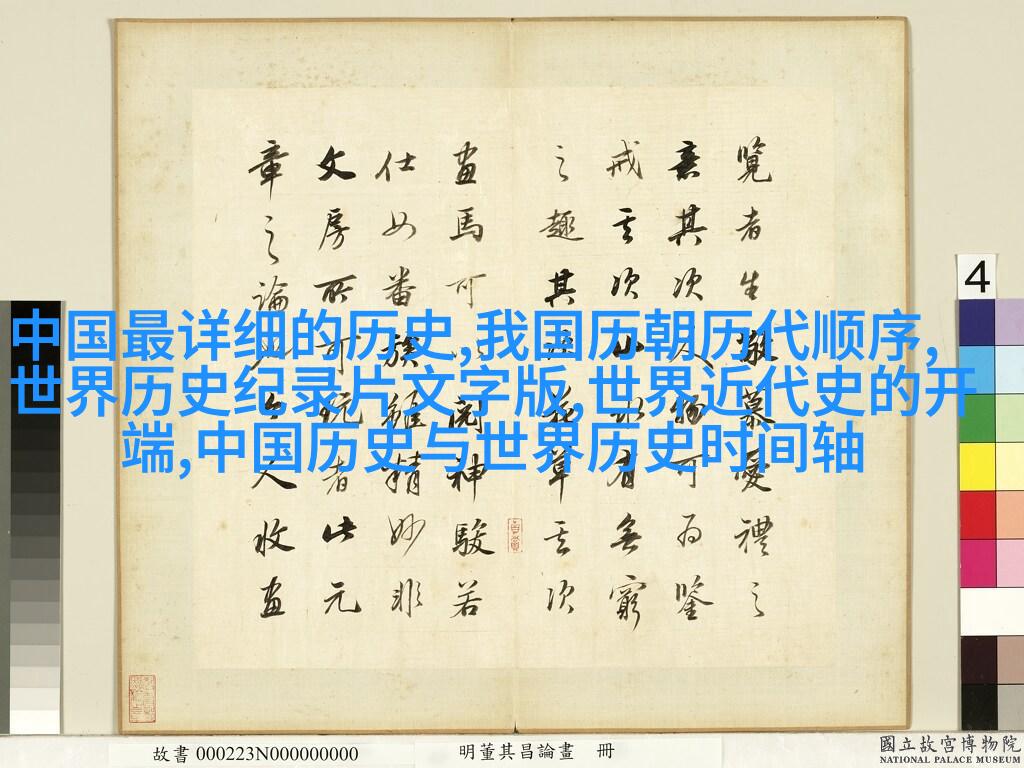 中国最详细的历史,我国历朝历代顺序,
世界历史纪录片文字版,世界近代史的开
端,中国历史与世界历史时间轴
覽者生敬慕愛禮之
意其次人物可為鑒
戒其次山水有無窮
之趣其次花草其次
畫馬可以閱神駿若
仕女番族雖精妙非
文房所可玩者此元
章之論今人收畫
4
故書 000223N000000000
明董其昌論畫 冊
國立故宮博物院
NATIONAL PALACE MUSEUM